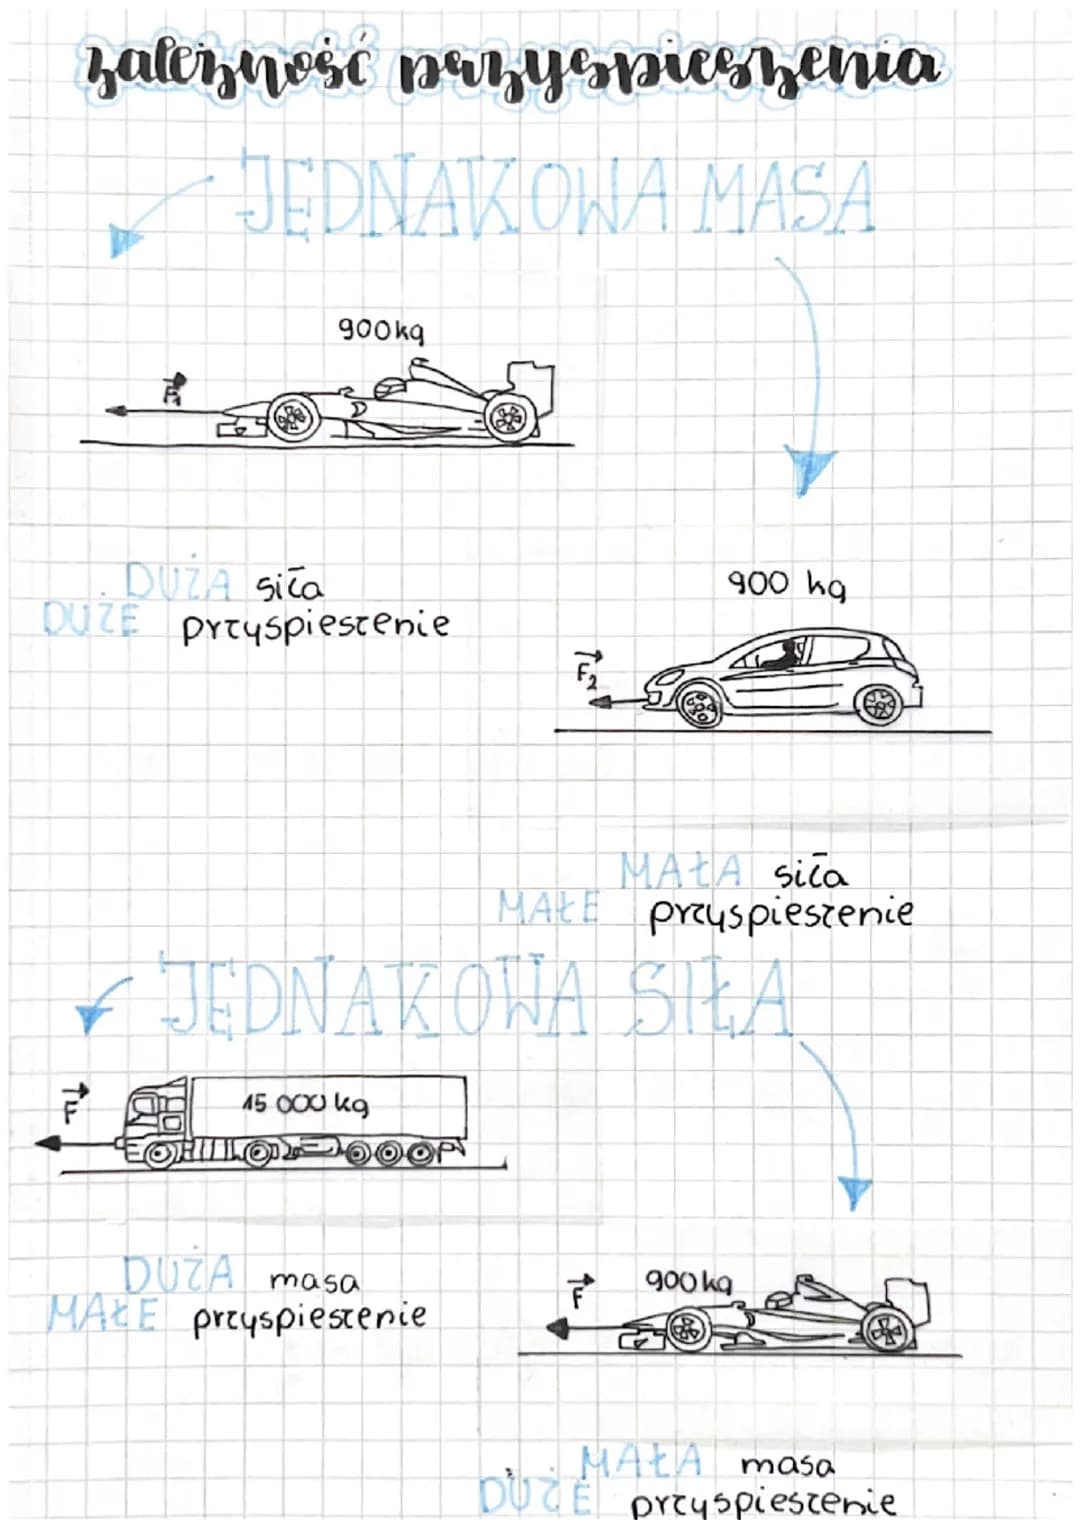 zależność przyspieszenia
JEDNAKOWA MASA
900kg
F₁
DUŻA siła
DUŻE przyspieszenie
900 kg
F₂
MAŁA siła
MAŁE przyspieszenie
JEDNAKOWA SIŁA
F
15 000 kg
DUŻA masa
MAŁE przyspieszenie
F
900kg
MAŁA masa
DUŻE przyspieszenie